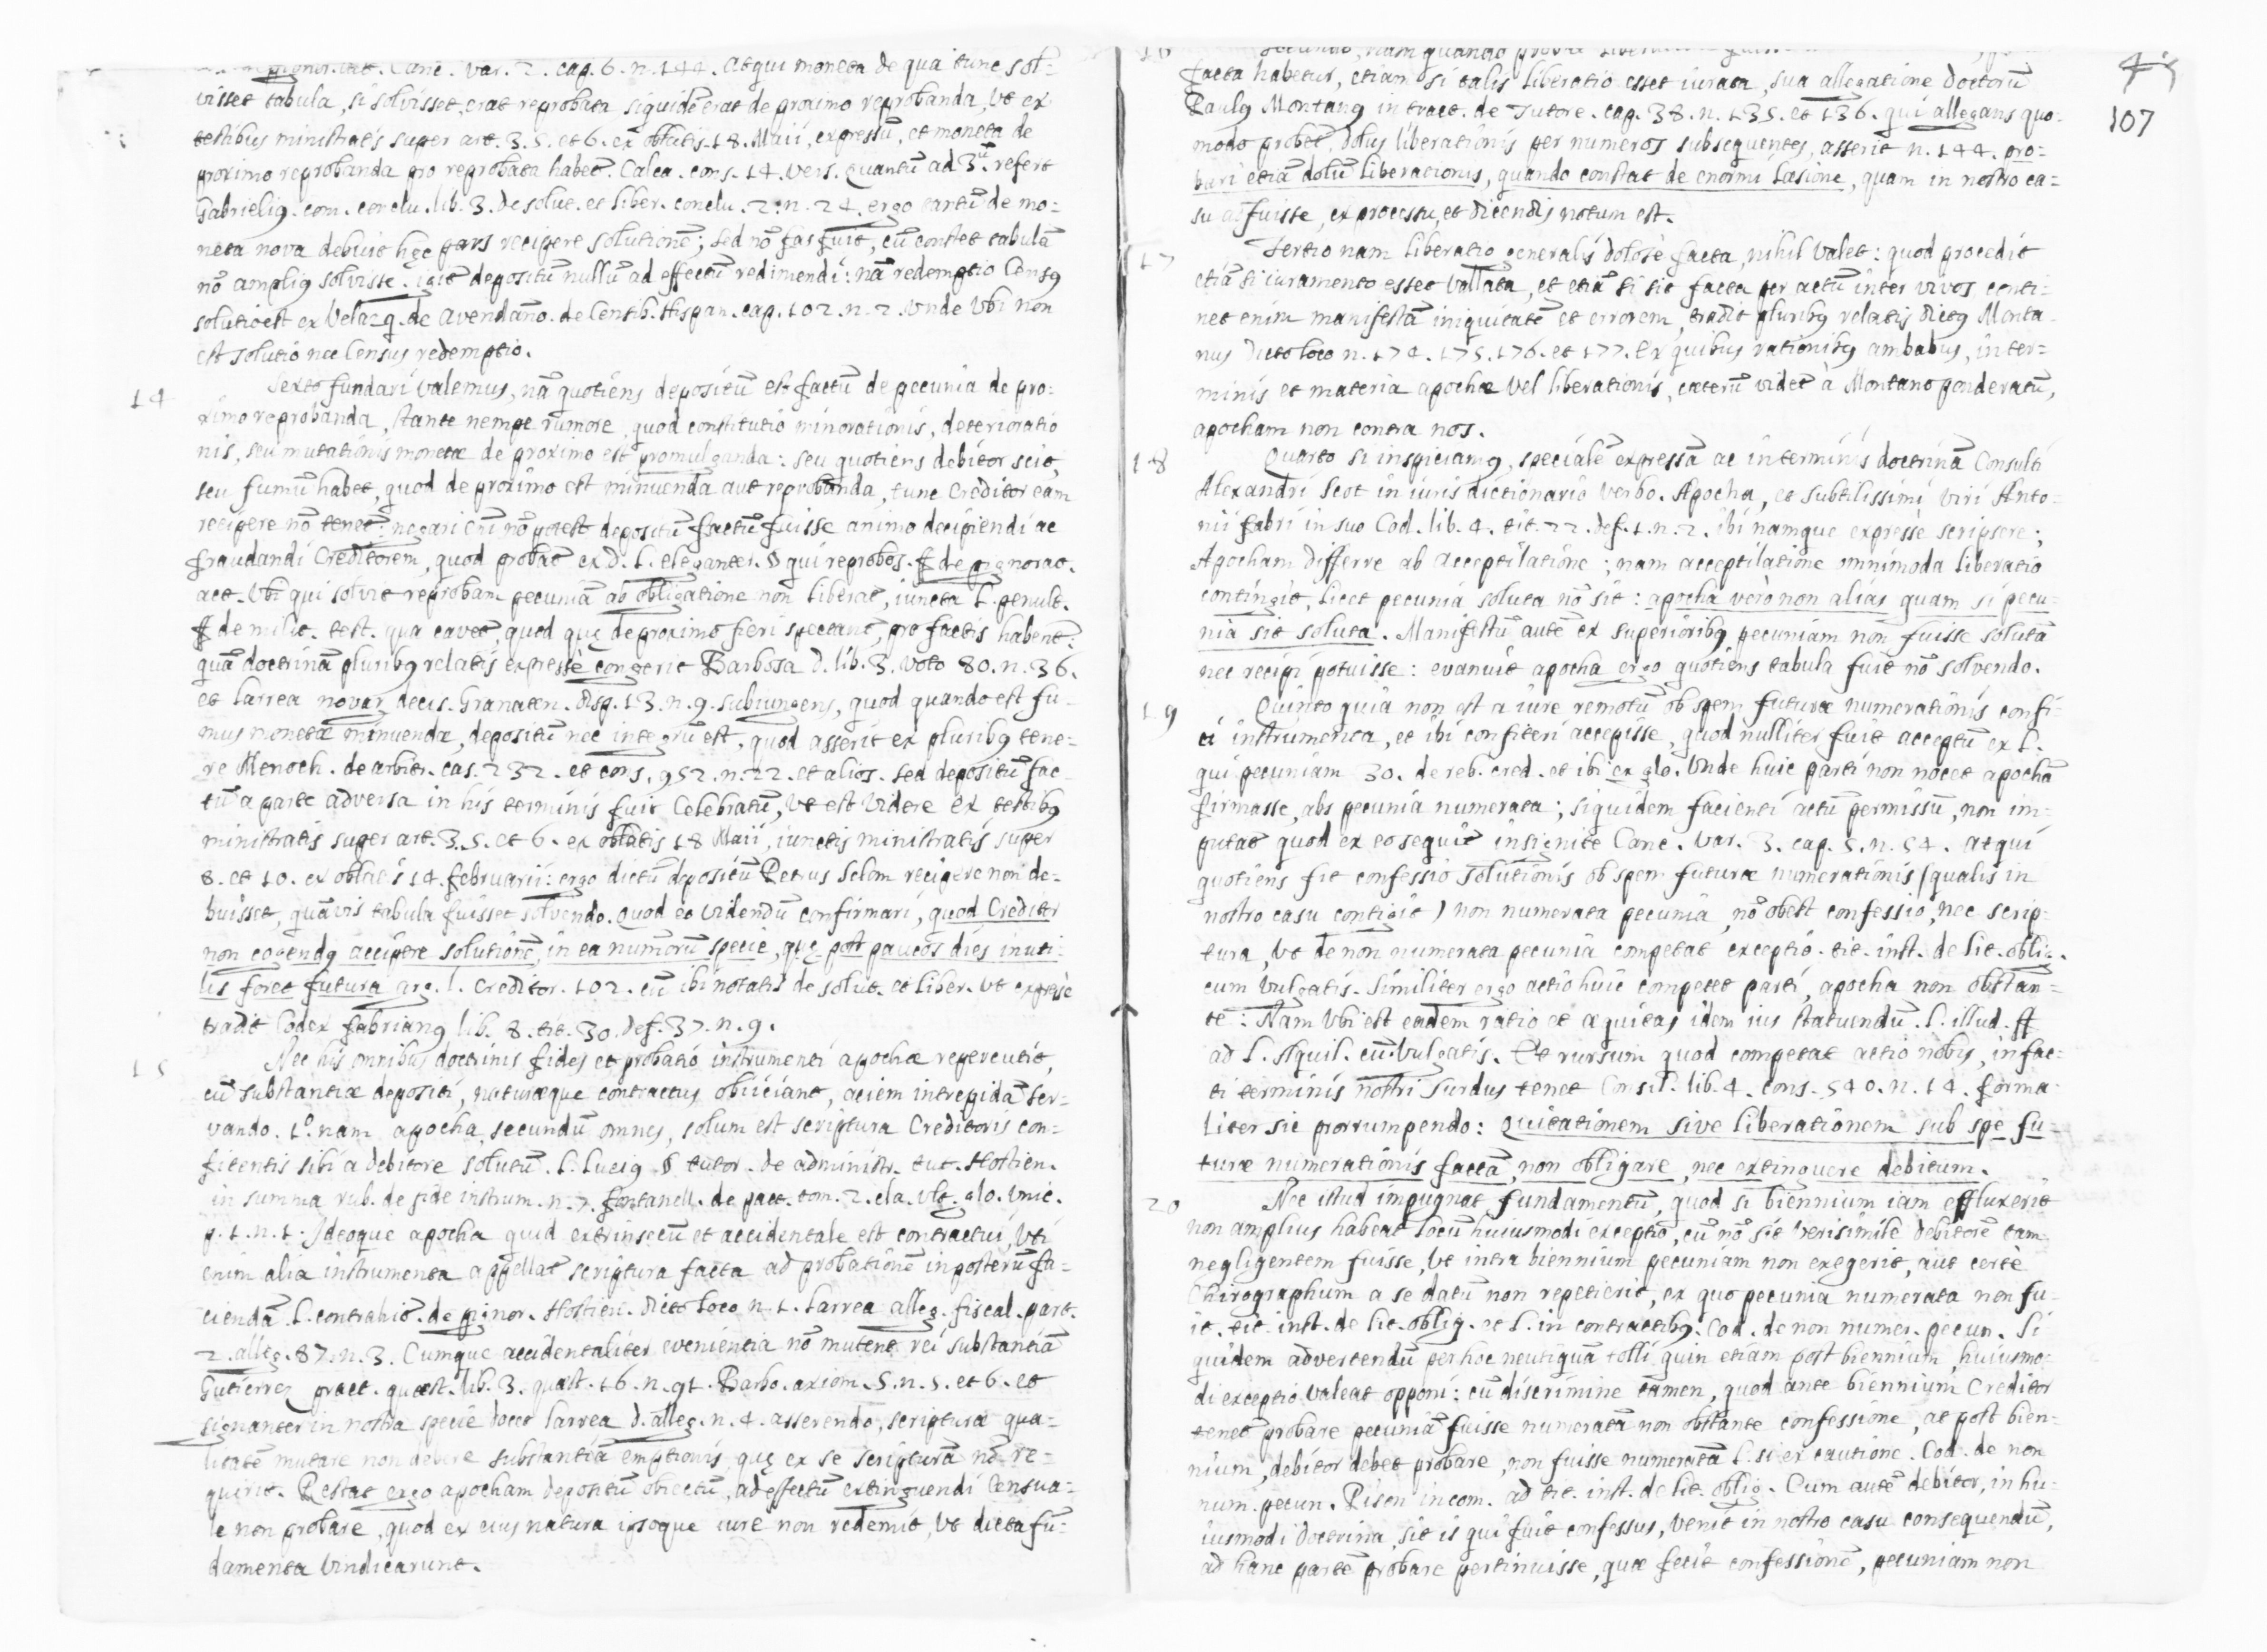 pignor. tit. Canc. var. 2. cap. 6. n. 144. Atqui moneta de qua tunc sol=
visset tabula, si solvisset, erat reprobata siquidē erat de proximo reprobanda, Vt ex
testibus ministratis super art. 3. 5. et 6. ex oblatis 18. Maii, expressū, et moneta de
proximo reprobanda pro reprobata habet̄. Calca. cons. 14. vers. Quantū ad 3ū. refert
Gabrieliꝰ. com. conclu. lib. 3. de solut. et liber. conclu. 2. n. 24. ergo tantū de mo=
neta nova debuit hęc pars recipere solutionē; sed nō fas fuit, cū constet tabulā
nō ampliꝰ solvisse. igit̄ depositū nullū ad effectū redimendi: nā redemptio Censꝰ
solutio est ex Velazq. de Avendaño. de Censib. Hispan. cap. 102. n. 2. Vnde Vbi non
est solutio nec Census redemptio.
14 Sexto fundari valemus, nā quotiens depositū est factū de pecunia de pro:
ximo reprobanda, stante nempe rumore, quod constitutio minorationis, deterioratio
nis, seu mutationis monetæ de proximo est promulganda: seu quotiens debitor scit,
seu fumū habet, quod de proximo est minuenda aut reprobanda, tunc Creditor eam
recipere nō tenet̄: negari eni nō potest depositū factū fuisse animo decipiendi ac
fraudandi Creditorem, quod probat̄ ex d. l. eleganter. § qui reprobos. ff de pignorat.
act. Vbi qui solvit reprobam pecuniā ab obligatione non liberat̄, iuncta l. penult.
ff de milit. test. qua cavet̄, quod quę de proximo fieri spectant̄, pro factis habent̄:
quā doctrinā pluribꝰ relatis expressè congerit Barbosa d. lib. 3. voto 80. n. 36.
et Larrea novar. decis. Granaten. disp. 13. n. 9. subiungens, quod quando est fu=
mus monetæ minuendæ, depositū nec integrū est, quod asserit ex pluribꝰ tene=
re Menoch. de arbitr. cas. 232. et cons. 952. n. 22. et alios. sed depositū fac=
tū a parte adversa in his terminis fuit Celebratū, Vt est videre ex testibꝰ
ministratis super art. 3. 5. et 6. ex oblatis 18 Maii, iunctis ministratis super
8. et 10. ex oblatis 14. februarii: ergo dictū depositū Petrus Selom recipere non de=
buisset, quāvis tabula fuisset solvendo. Quod eo videndū confirmari, quod Creditor
non cogendꝰ accipere solutionē, in ea numōrū specie, quę post paucos dies inuti=
lis foret futura arg. l. Creditor. 102. cū ibi notatis de solut. et liber. Vt expressè
tradit Codex fabrianꝰ lib. 8. tit. 30. def. 37. n. 9.
15 Nec his omnibus doctrinis fides et probatio instrumenti apochæ repercutit,
cū substantiæ depositi, naturæque contractus obiiciant̄, aciem intrepidā ser=
vando. 1º. nam apocha, secundū omnes, solum est scriptura Creditoris con=
fitentis sibi a debitore solutū. l. Luciꝰ § tutor. de administr. tut. Hostien.
in summa rub. de fide instrum. n. 7. fontanell. de pact. tom. 2. cla. ult. glo. Vnic.
p. 1. n. 1. Ideoque apocha quid extrinsecū et accidentale est contractui, Vti
enim alia instrumenta appellat̄ scriptura facta ad probationē inposterū fa=
ciendā. l. contrahit̄. de pignor. Hostien. dicto loco n. 1. Larrea alleg. fiscal. part.
2. alleg. 87. n. 3. Cumque accidentaliter evenientia nō mutent rei substantiā
Gutierrez pract. quæst. lib. 3. quæst. 16. n. 91. Barbo. axiom. 5. n. 5. et 6. et
signanter in nostra specie docet Larrea d. alleg. n. 4. asserendo, scripturæ qua=
litatē mutare non debere substantiā emptionis, quę ex se scripturā nō re=
quirit. Restat ergo apocham depositū obiectū, ad effectū extinguendi Censua=
le non probare, quod ex eius natura ipsoque iure non redemit, Vt dicta fū=
damenta vindicarunt.
107
facta habetur, etiam si talis liberatio esset iurata, sua allegatione doctorū
Paulꝰ Montanꝰ in tract. de Tutore. cap. 38. n. 135. et 136. qui allegans quo=
modo probet̄, dolus liberationis per numeros subsequentes, asserit n. 144. pro=
bari etiā dolū liberationis, quando constat de enormi læsione, quam in nostro ca=
su adfuisse, ex processu, et dicendis notum est.
17 Tertio nam liberatio generalis dolosè facta, nihil valet: quod procedit
etiā si iuramento esset vallata, et etiā si sit facta per actū inter vivos conti=
net enim manifestā iniquitatē et errorem, tradit pluribꝰ relatis dictꝰ Monta=
nus dicto loco n. 174. 175. 176. et 177. Ex quibus rationibꝰ ambabus, in ter=
minis et materia apochæ vel liberationis, cæterū videt̄ à Montano ponderatū,
apocham non contra nos.
18 Quarto si inspiciamꝰ, specialē expressā ac in terminis doctrinā Consulti
Alexandri Scot in iuris dictionario verbo. Apocha, et subtilissimi viri Anto=
nii fabri in suo Cod. lib. 4. tit. 22. def. 1. n. 2. ibi namque expressè scripsere;
Apocham differre ab acceptilatione; nam acceptilatione omnimoda liberatio
contingit, licet pecunia soluta nō sit: apocha verò non aliàs quam si pecu=
nia sit soluta. Manifestū autē ex superioribꝰ pecuniam non fuisse solutā
nec recipi potuisse: evanuit apocha ergo quotiens tabula fuit nō solvendo.
19 Quinto quia non est a iure remotū ob spem futuræ numerationis confi=
ci instrumenta, et ibi confiteri accepisse, quod nulliter fuit acceptū ex l.
qui pecuniam 30. de reb. cred. et ibi ex glo. Vnde huic parti non nocet apochā
firmasse, abs pecunia numerata; siquidem facienti actū permissū, non im=
putat̄ quod ex eo sequit̄ insignite Canc. var. 3. cap. 5. n. 54. atqui
quotiens fit confessio solutionis ob spem futuræ numerationis (qualis in
nostro casu contigit) non numerata pecunia, nō obest confessio, nec scrip=
tura, Vt de non numerata pecunia competat exceptio. tit. inst. de lit. oblig.
cum vulgatis. Similiter ergo actio huic competet parti, apocha non obstan=
te: Nam Vbi est eadem ratio et æquitas idem ius statuendū. l. illud. ff
ad l. Aquil. cū vulgatis. Et rursum quod competat actio nobis, in fac=
ti terminis nostri Surdus tenet Consil. lib. 4. cons. 540. n. 14. forma=
liter sic prorrumpendo: Quitationem sive liberationem sub spe fu=
turæ numerationis factā, non obligare, nec extinguere debitum.
20 Nec istud impugnat fundamentū, quod si biennium iam effluxerit
non amplius habeat locū huiusmodi exceptio, cū nō sit verisimile debitorē tam
negligentem fuisse, Vt intra biennium pecuniam non exegerit, aut certè
Chirographum a se datū non repetierit, ex quo pecunia numerata non fu=
it. tit. inst. de lit. oblig. et l. in contractibꝰ. Cod. de non numer. pecun. Si
quidem advertendū per hoc neutiquā tolli, quin etiam post biennium, huiusmo=
di exceptio valeat opponi: cū discrimine tamen, quod ante biennium Creditor
tenet̄ probare pecuniā fuisse numeratā non obstante confessione, at post bien=
nium, debitor debet probare, non fuisse numeratā l. si ex cautione. Cod. de non
num. pecun. Pisen in com. ad tit. inst. de lit. oblig. Cum autē debitor, in hu=
iusmodi doctrina, sit is qui fuit confessus, venit in nostro casu consequendū,
ad hanc partē probare pertinuisse, quæ fecit confessionē, pecuniam non